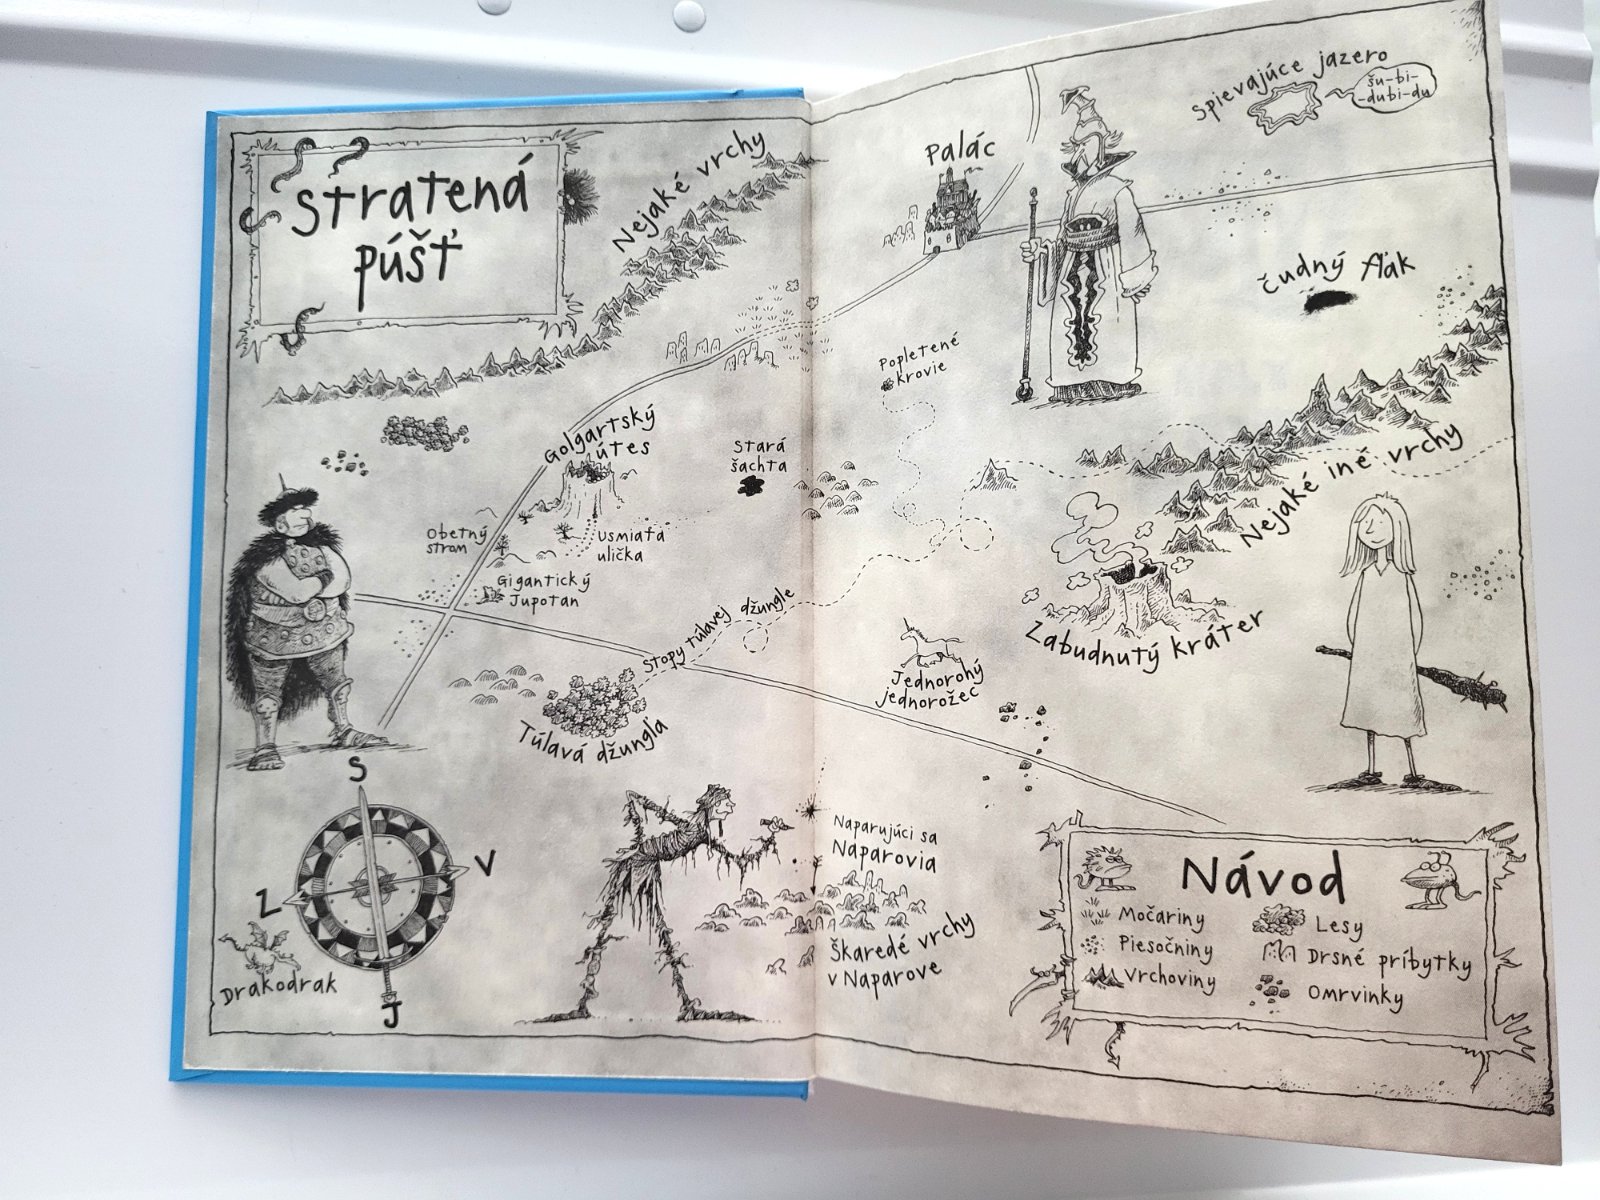 Stratená
púšť
Nejaké vrchy
Golgartský
útes
Stará
šachta
Obetný
strom
Usmiata
ulička
Gigantický
Jupotan
Stopy túlavej džungle
Túlavá džungľa
S
V
Z
J
Drakodrak
Spievajúce jazero
šu-bi-
-dubi-du
Palác
Čudný fľak
Popletené
krovie
Nejaké iné vrchy
Zabudnutý kráter
Jednorohý
jednorožec
Naparujúci sa
Naparovia
Škaredé vrchy
v Naparove
Návod
Močariny
Piesočniny
Vrchoviny
Lesy
Drsné príbytky
Omrvinky